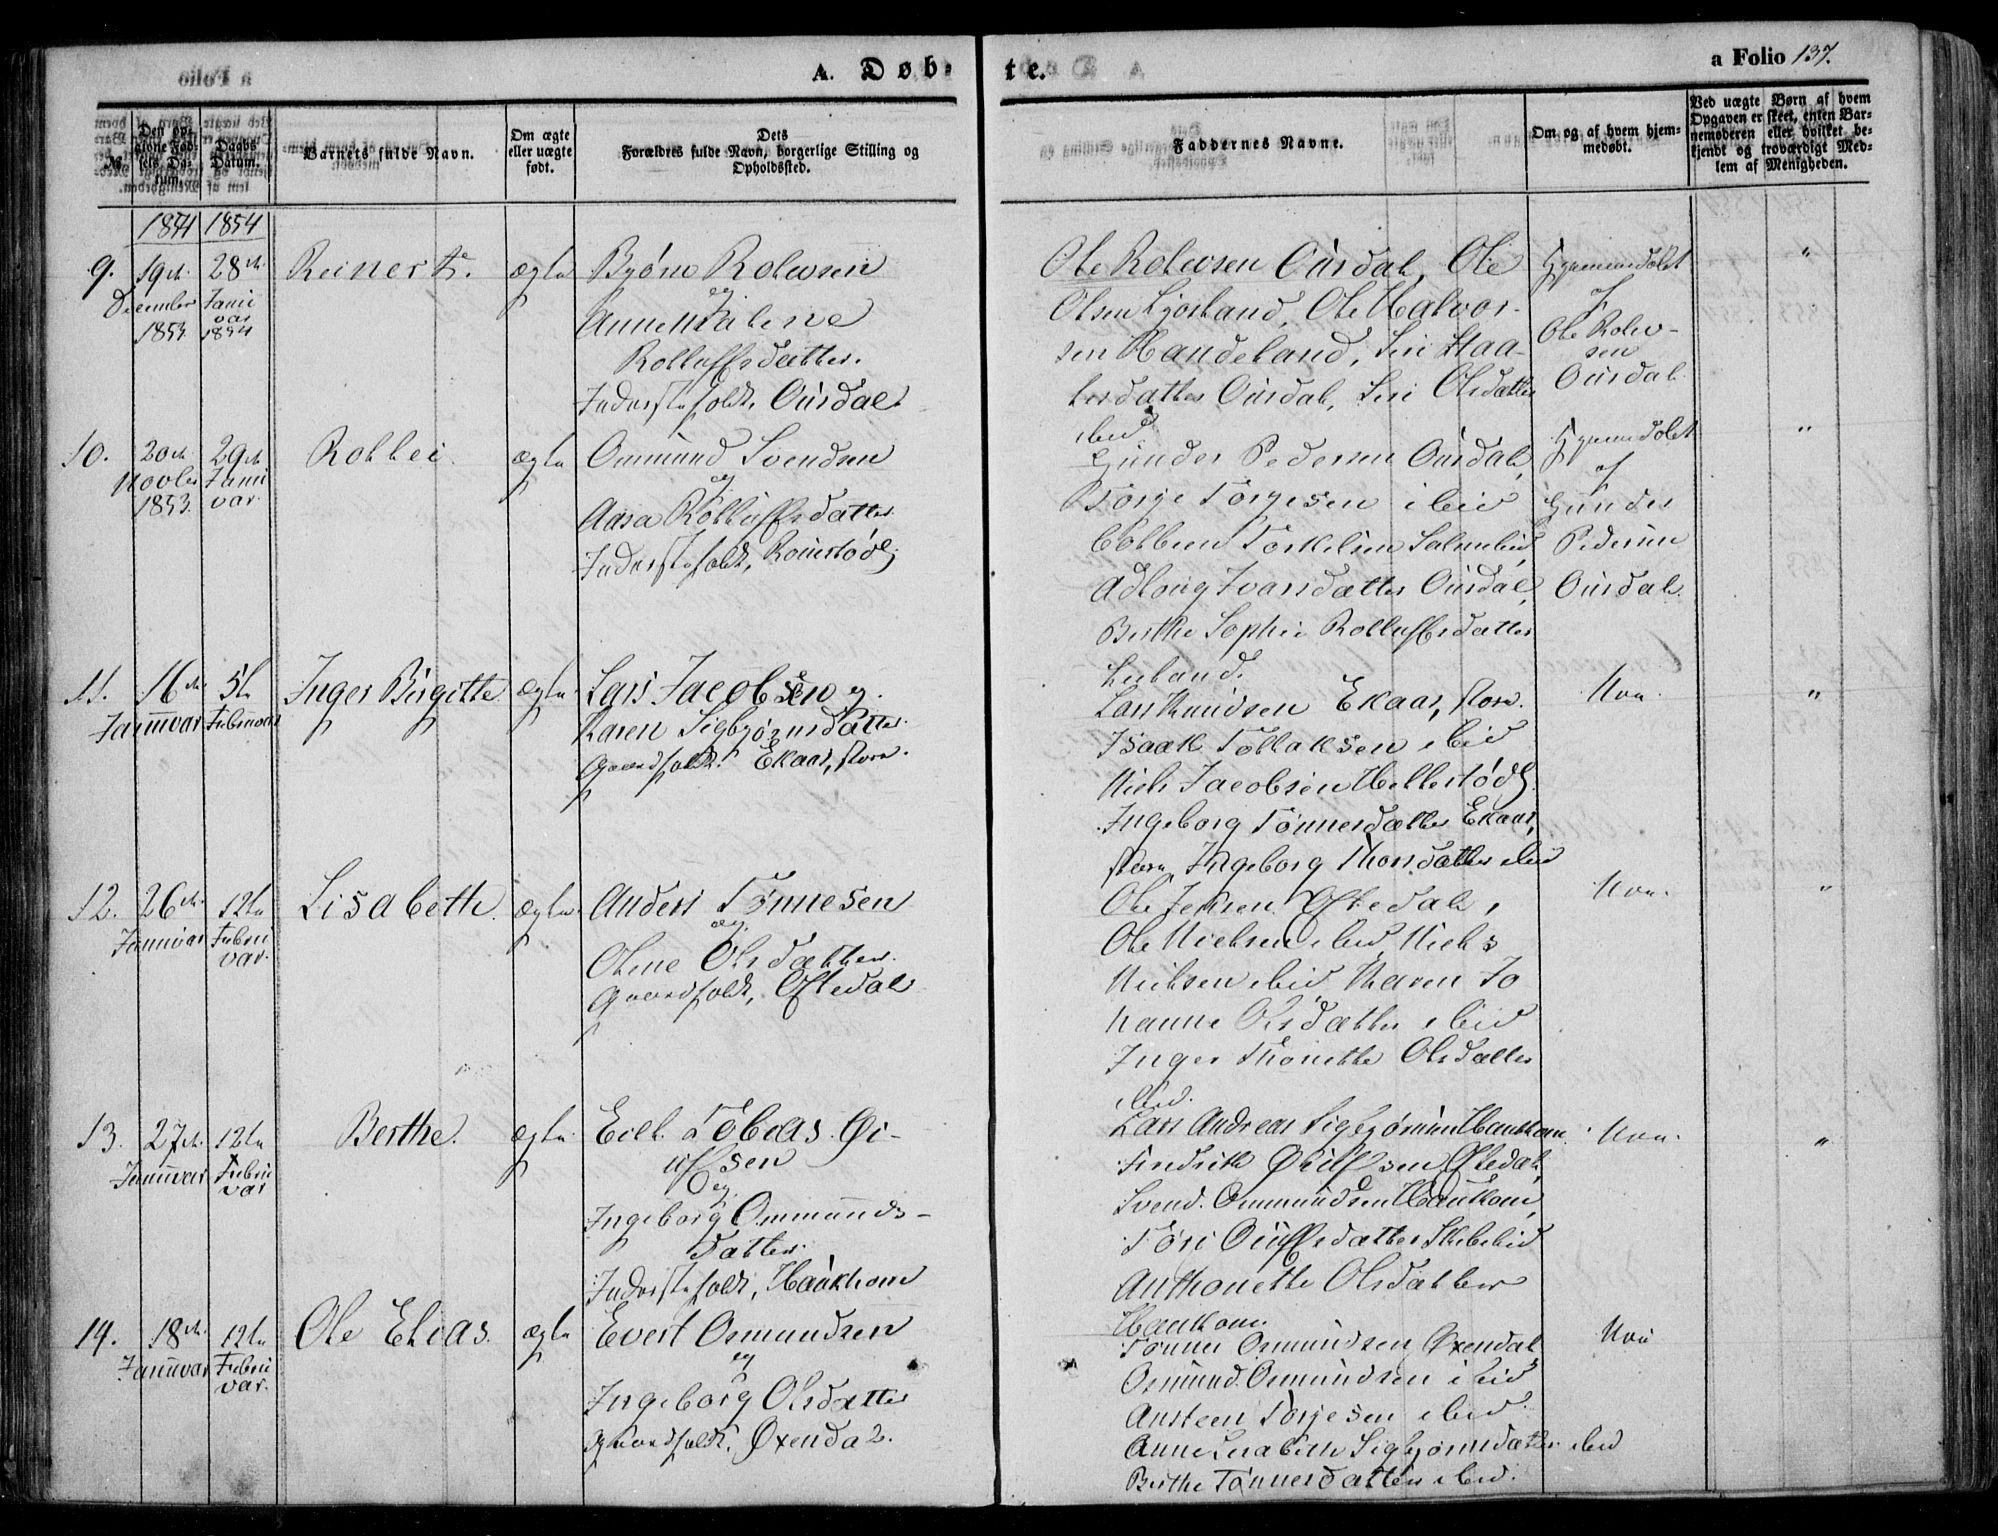 A. Døb-
te.
a Folio 137.
No.
Den opgivne Fødsels Datum.
Daabs Datum.
Barnets fulde Navn.
Om ægte eller uægte født.
Dets Forældres fulde Navn, borgerlige Stilling og Opholdssted.
Faddernes Navne.
Om og af hvem hjemmedøbt.
Ved uægte Børn af hvem Opgaven er skeet, enten Barnemoderen eller hvilket bekjendt og troværdigt Medlem af Menigheden.
1854
9.
19de
December
1853
28de
Janu
var
1854
Reinert
ægte
Byørn Rolevsen
og
Anne Malene
Rolluffsdatter.
Inderstefolk, Ousdal
Ole Rolevsen Ousdal, Ole
Olsen Ljosland, Ole Halvor-
sen Haudeland, Siri
datter Ousdal, Siri Olsdatter
ibid
Hjemmedøbt
af
Ole Rolev-
sen
Ousdal.
"
10.
20de
Novber
1853
29de
Janu
var.
Rollei
ægte
Ommund Svendsen
og
Aasa Rolluffsdatter
Inderstefolk,
Gunder Pedersen Ousdal,
Torje Torjesen ibid
Torkelsen
Adlong Ivarsdatter Ousdal,
Berthe Sophie Rolluffsdatter
Hjemmedøbt
af
Gunder
Pedersen
Ousdal.
"
11.
16de
Januvar
5te
Februvar
Inger Birgitte
ægte
Lars Jacobsen og
Karen Sigbjørnsdatter
Gaardfolk. Ekaas, store.
Lars Knudsen Ekaas, store.
Isaak Tollaksen ibid
Niels Jacobsen
Ingeborg Tønnesdatter Ekaas,
store, Ingeborg Thorsdatter ibid
Non.
"
12.
26de
Januvar
12te
Febru
var.
Lisabeth
ægte
Anders Tønnesen
og
Oline Olsdatter
Gaardfolk, Oftedal
Ole Jensen Oftedal,
Ole Nielsen ibid, Niels
Nielsen ibid Karen Jo
hanne Olsdatter ibid
Inger Thonette Olsdatter
ibid.
Non.
"
13.
27de
Januvar
12te
Febru
var
Berthe.
ægte
Eilt Tobias
sen
og
Ingeborg Ommunds-
datter.
Inderstefolk, Haukhom
Lars Andreas Sigbjørnsen Haukhom
Fredrik
Oftedal,
Svend Ommundsen Haukhom,
datter
Anthonette Olsdatter
Haukhom.
Non.
"
14.
18de
Januvar
12te
Febru
var.
Ole Elias.
ægte
Evert Osmundsen
og
Ingeborg Olsdatter
Gaardfolk, Øxendal.
Tønnes Osmundsen Øxendal
Osmund Osmundsen ibid
Ansteen Torjesen ibid.
Anne Lisabeth Sigbjørnsdatter ibid
Berthe Tønnesdatter ibid.
Non